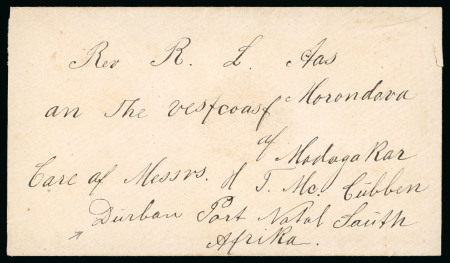 Rev R. L. Aas
an The vestcoast Morondava
of Madagakar
Care of Messrs. H T. Mc. Cubben
Durban Port Natal South
Afrika.